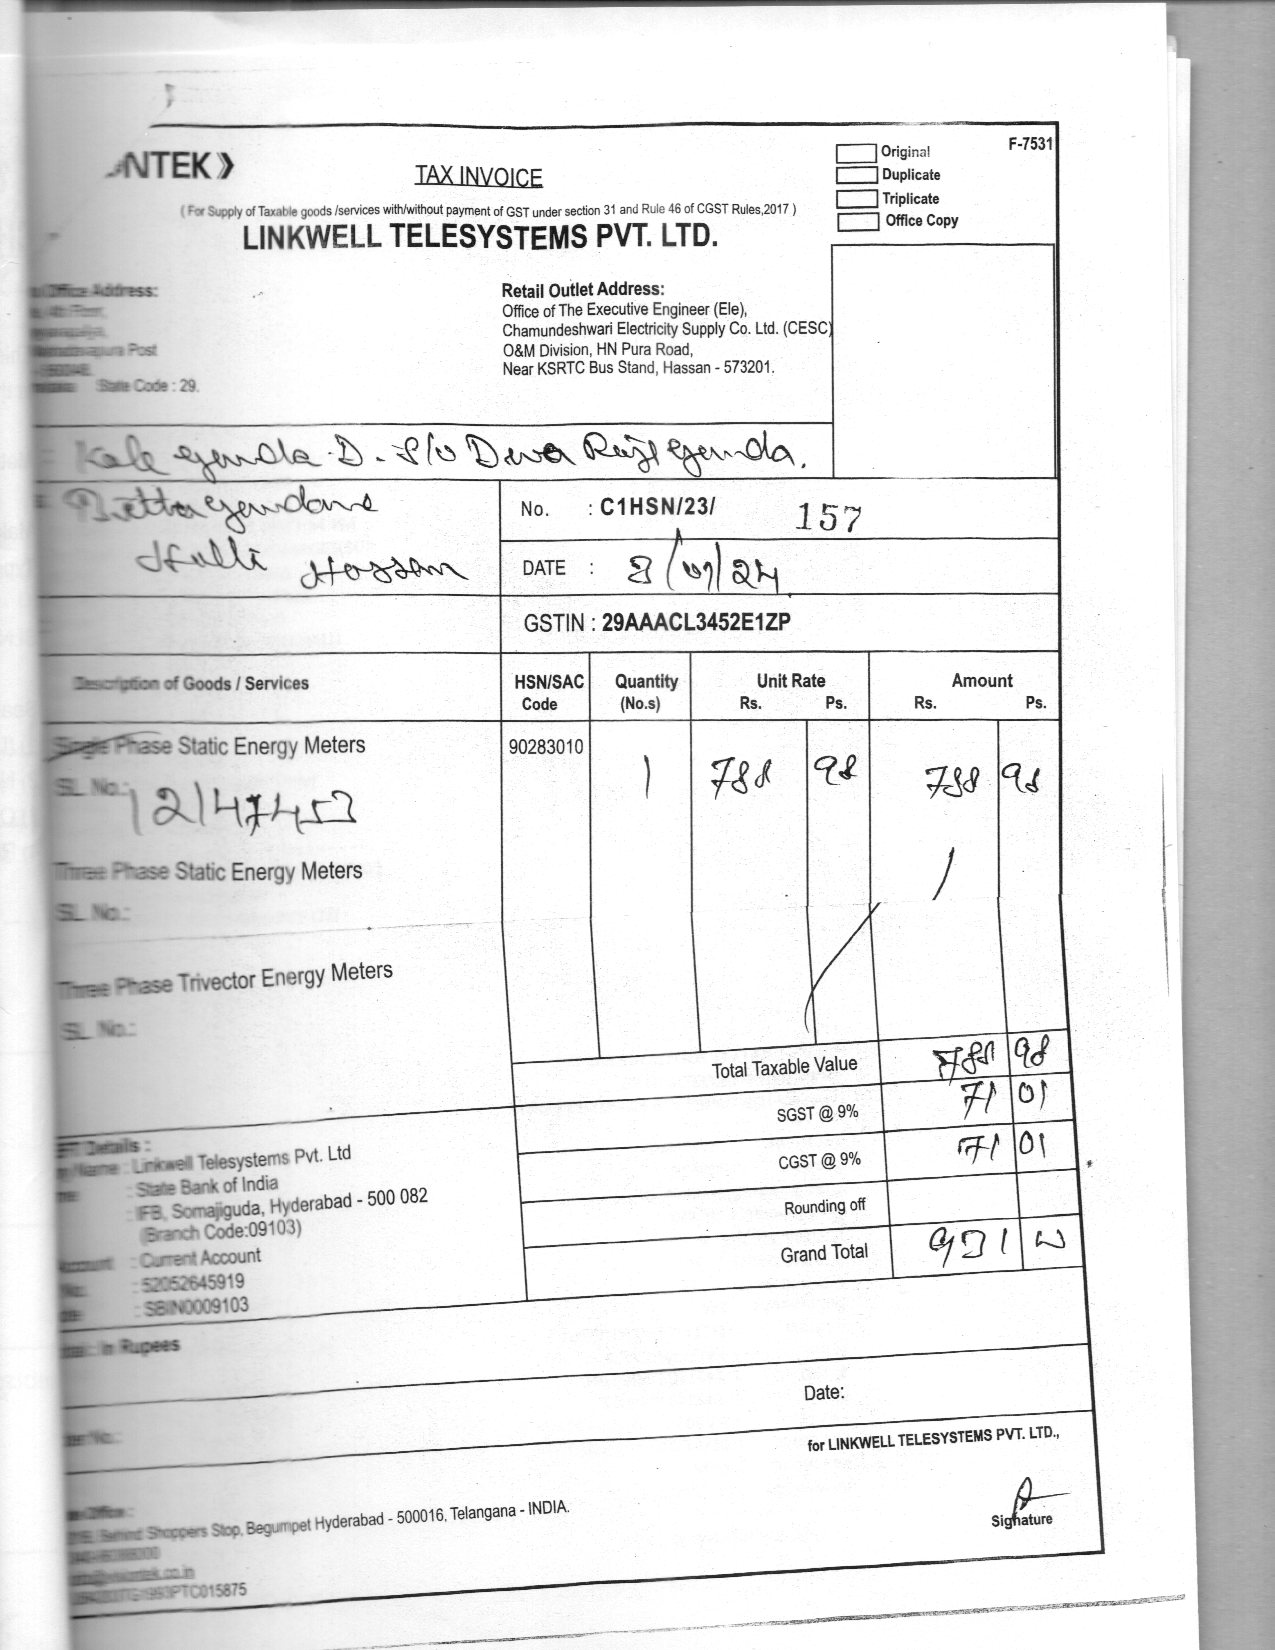 NTEK
TAX INVOICE
( For Supply of Taxable goods /services with/without payment of GST under section 31 and Rule 46 of CGST Rules,2017 )
LINKWELL TELESYSTEMS PVT. LTD.
Original
Duplicate
Triplicate
Office Copy
F-7531
Office Address:
4th Floor,
Post
State Code : 29.
Retail Outlet Address:
Office of The Executive Engineer (Ele),
Chamundeshwari Electricity Supply Co. Ltd. (CESC)
O&M Division, HN Pura Road,
Near KSRTC Bus Stand, Hassan - 573201.
D. S/o
Hassan
No. : C1HSN/23/ 157
DATE : 8/07/24
GSTIN : 29AAACL3452E1ZP
Description of Goods / Services HSN/SAC Code Quantity (No.s) Unit Rate Rs. Ps. Amount Rs. Ps.
Single Phase Static Energy Meters 90283010 1 788 98 788 98
SL. No.: 12147453
Three Phase Static Energy Meters
SL. No.:
Three Phase Trivector Energy Meters
SL. No.:
Total Taxable Value 788 98
SGST @ 9% 71 01
CGST @ 9% 71 01
Rounding off
Grand Total 931
Details :
Name : Linkwell Telesystems Pvt. Ltd
: State Bank of India
: IFB, Somajiguda, Hyderabad - 500 082
(Branch Code:09103)
Account : Current Account
: 52052645919
: SBIN0009103
In Rupees
Date:
No.:
for LINKWELL TELESYSTEMS PVT. LTD.,
Signature
Office :
Behind Shoppers Stop, Begumpet Hyderabad - 500016, Telangana - INDIA.
PTC015875